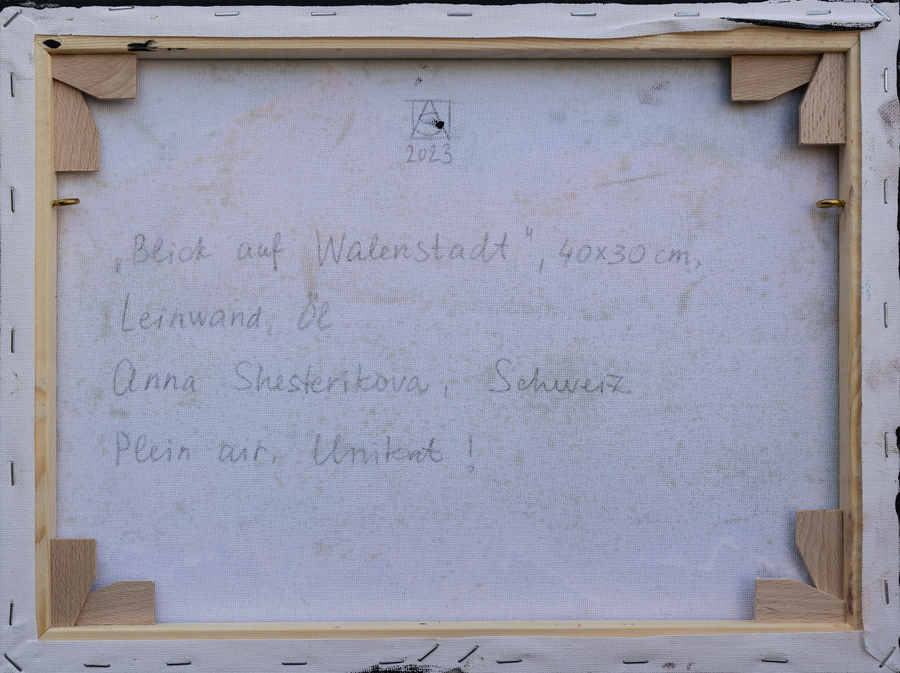 AS
2023
„Blick auf Walenstadt", 40x30 cm,
Leinwand, Öl
Anna Shesterikova, Schweiz
Plein air. Unikat!